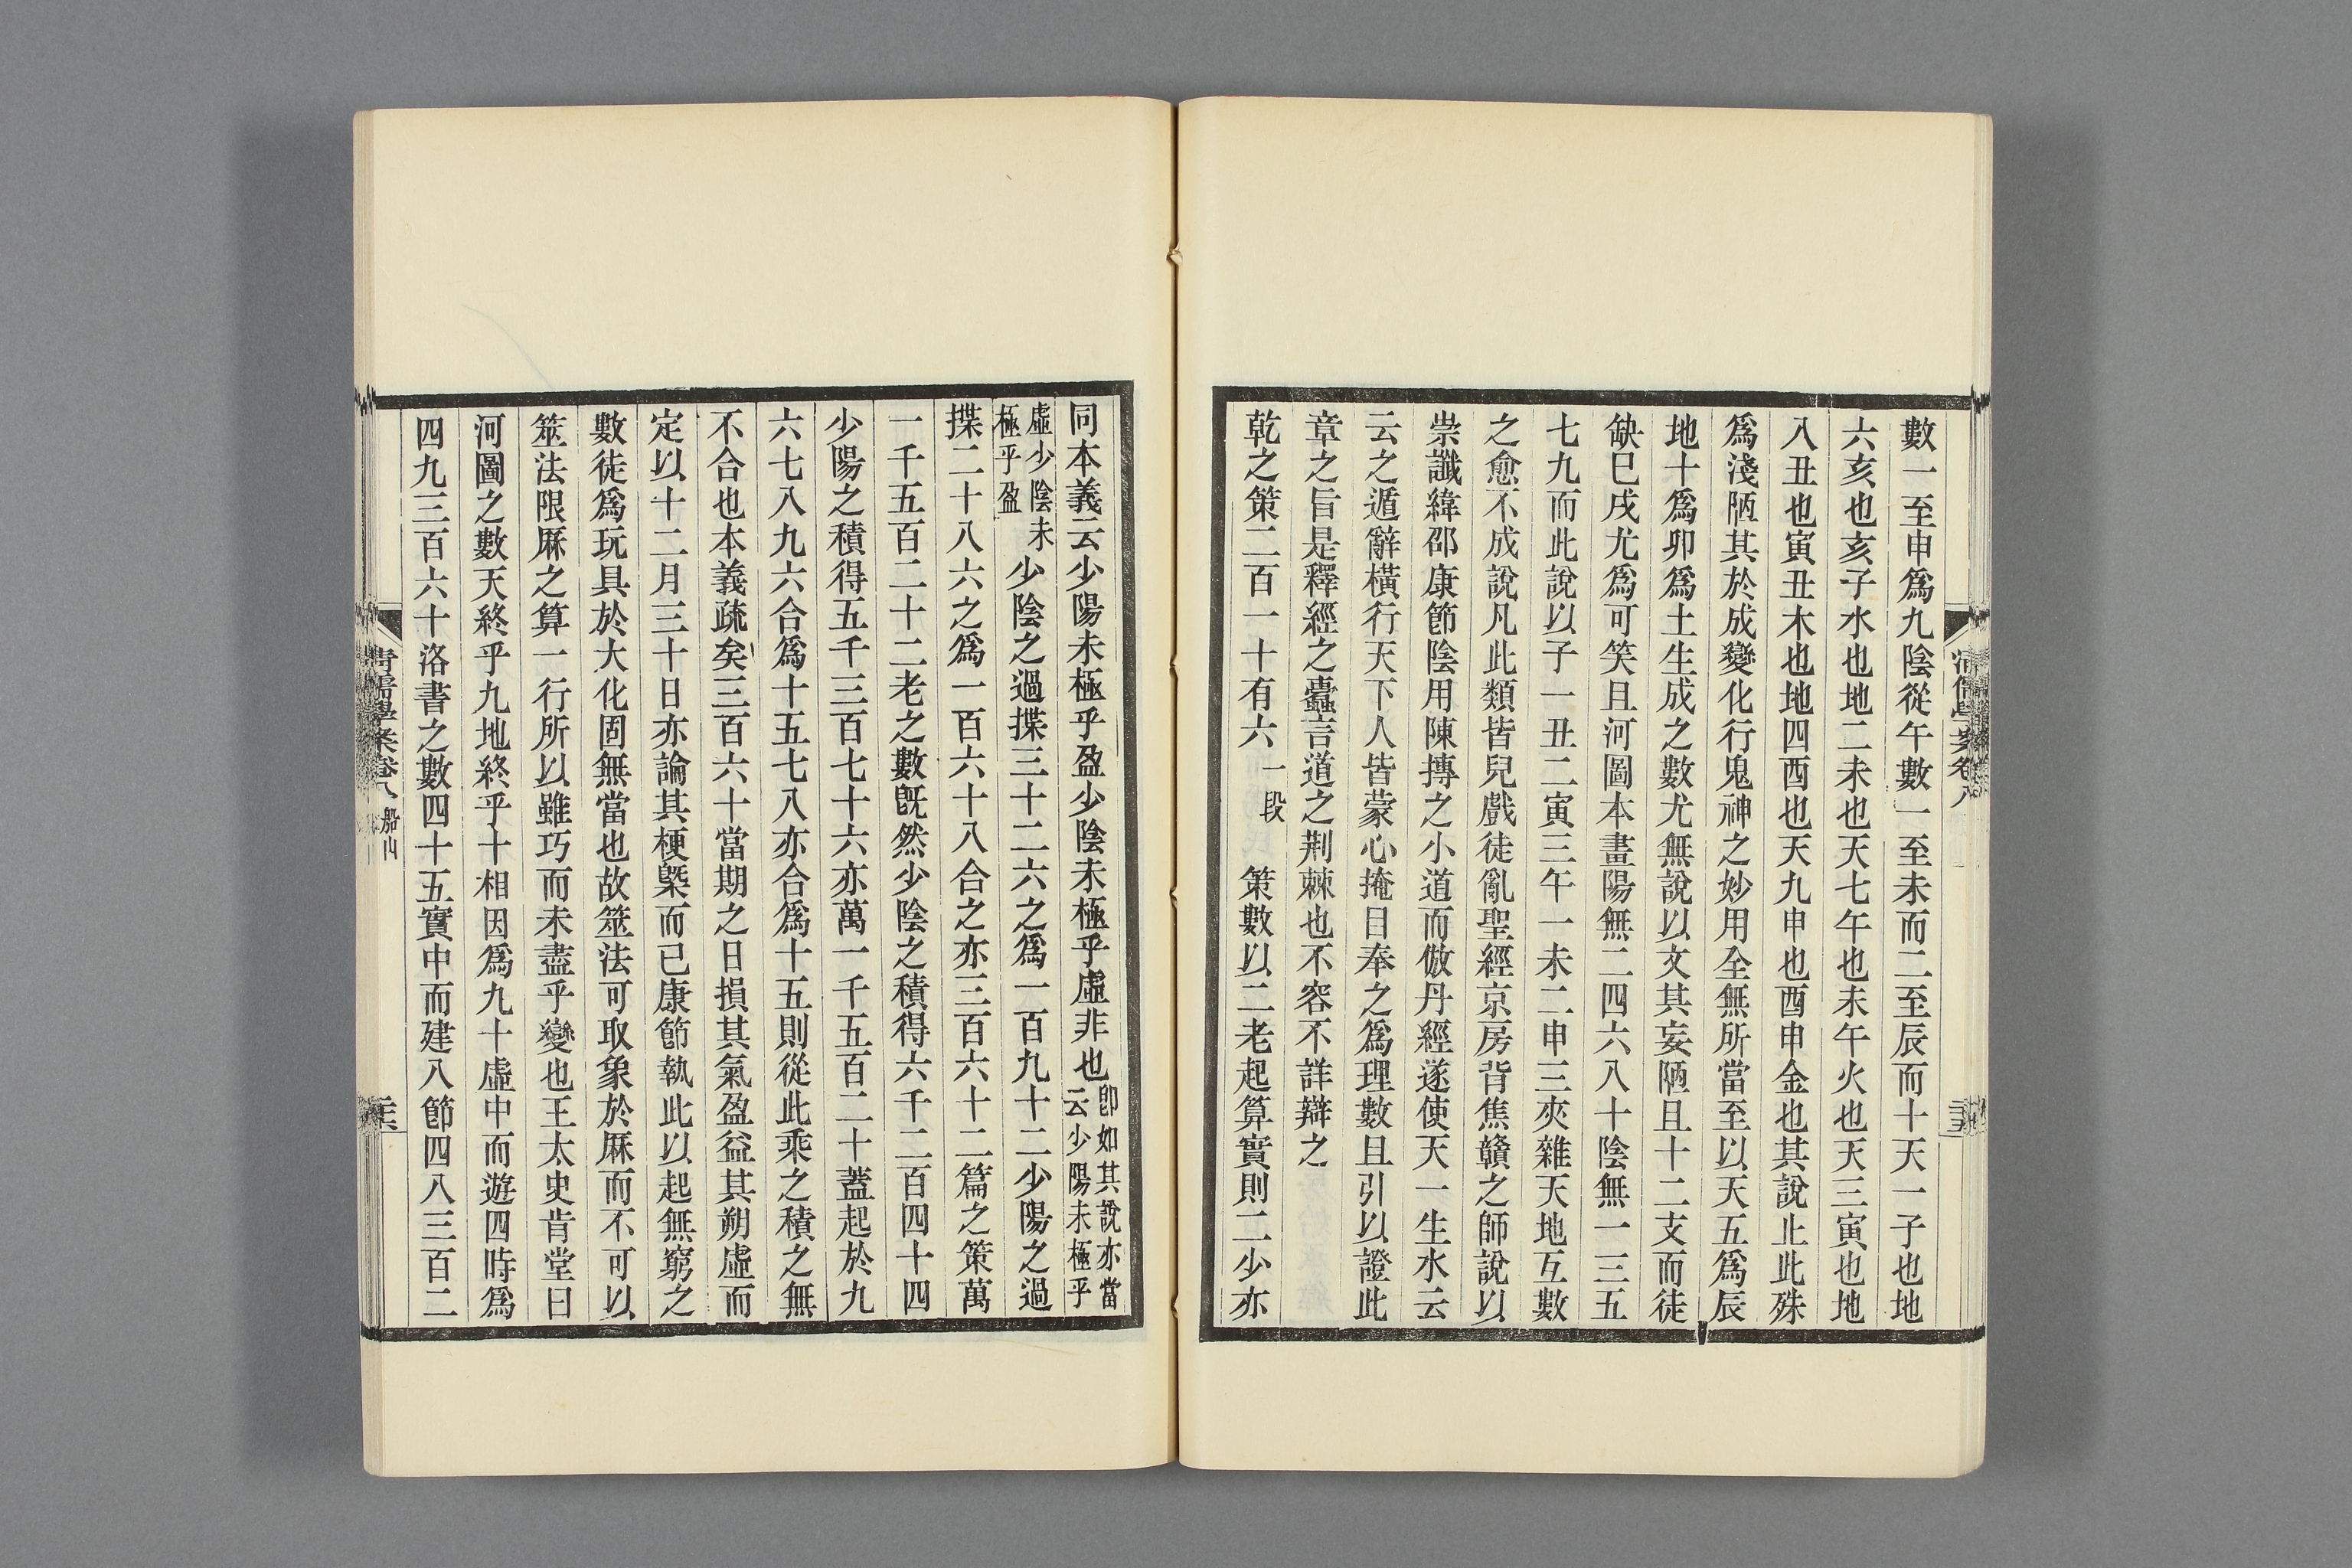 數一至申爲九陰從午數一至未而二至辰而十天一子也地
六亥也亥子水也地二未也天七午也未午火也天三寅也地
八丑也寅丑木也地四酉也天九申也酉申金也其說止此殊
爲淺陋其於成變化行鬼神之妙用全無所當至以天五爲辰
地十爲卯爲土生成之數尤無說以文其妄陋且十二支而徒
缺巳戌尤爲可笑且河圖本畫陽無二四六八十陰無一三五
七九而此說以子一丑二寅三午一未二申三夾雜天地互數
之愈不成說凡此類皆兒戲徒亂聖經京房背焦贛之師說以
崇讖緯邵康節陰用陳摶之小道而倣丹經遂使天一生水云
云之遁辭橫行天下人皆蒙心掩目奉之爲理數且引以證此
章之旨是釋經之蠹言道之荆棘也不容不詳辯之
乾之策二百一十有六一段 策數以二老起算實則二少亦
清儒學案卷八
同本義云少陽未極乎盈少陰未極乎虛非也卽如其說亦當云少陽未極乎
虛少陰未極乎盈少陰之過揲三十二六之爲一百九十二少陽之過
揲二十八六之爲一百六十八合之亦三百六十二篇之策萬
一千五百二十二老之數旣然少陰之積得六千二百四十四
少陽之積得五千三百七十六亦萬一千五百二十蓋起於九
六七八九六合爲十五七八亦合爲十五則從此乘之積之無
不合也本義疏矣三百六十當期之日損其氣盈益其朔虛而
定以十二月三十日亦論其梗槩而已康節執此以起無窮之
數徒爲玩具於大化固無當也故筮法可取象於厤而不可以
筮法限厤之算一行所以雖巧而未盡乎變也王太史肯堂曰
河圖之數天終乎九地終乎十相因爲九十虛中而遊四時爲
四九三百六十洛書之數四十五實中而建八節四八三百二
清儒學案卷八 船山